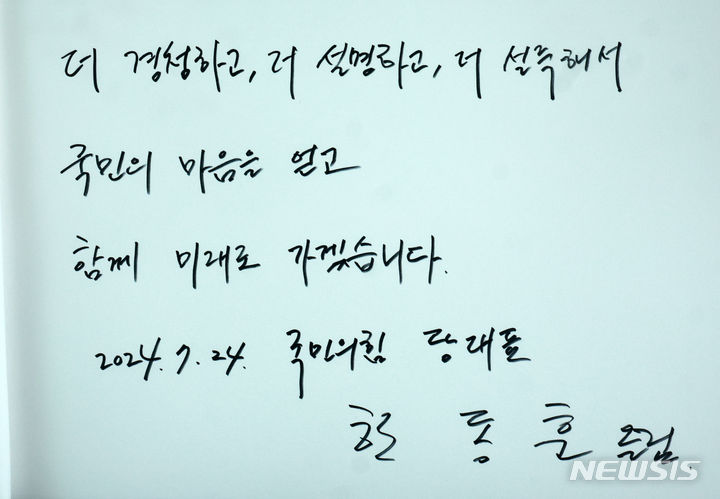 더 경청하고, 더 설명하고, 더 설득해서
국민의 마음을 얻고
함께 미래로 가겠습니다.
2024. 7. 24. 국민의힘 당대표
한 동 훈 올림
NEWSIS